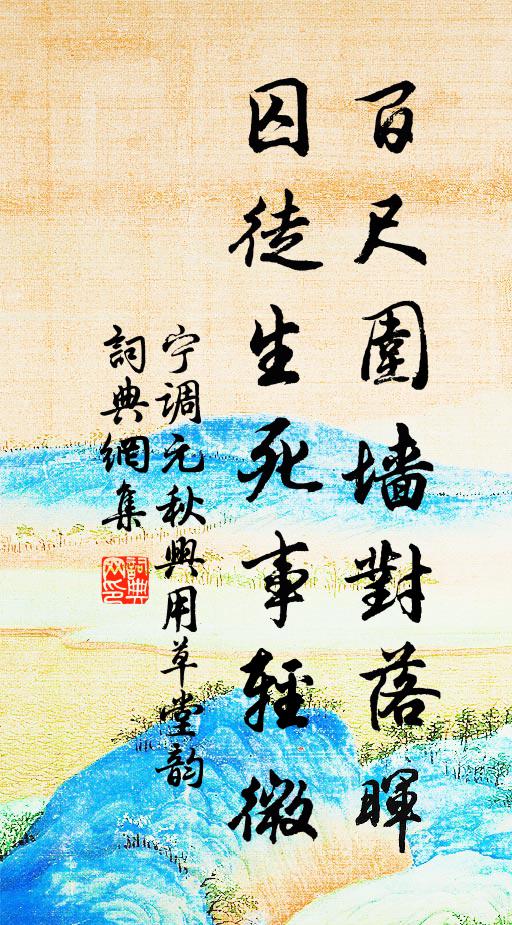 百尺圍墙對落暉
囚徒生死事輕微
宁调元秋興用草堂韵
詞典網集
詞典
网印